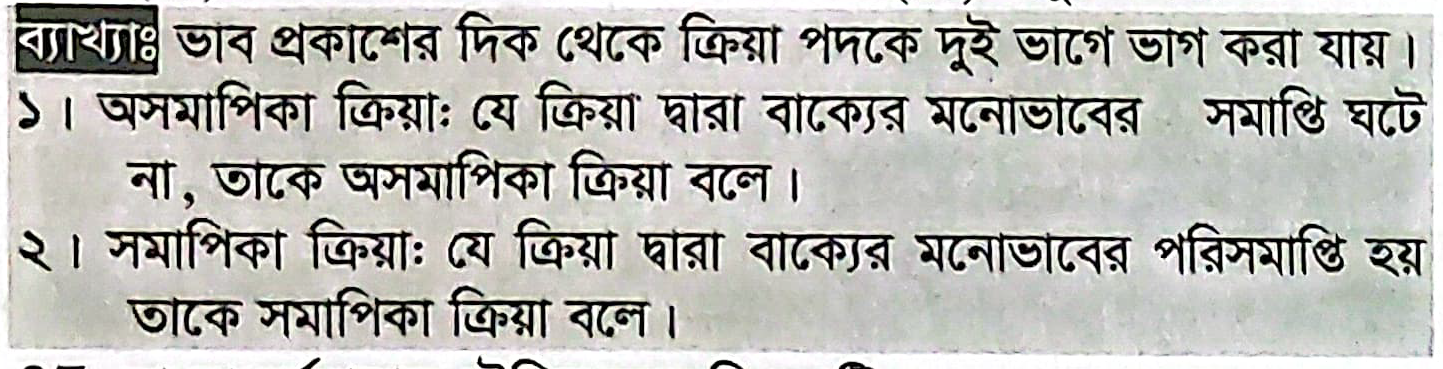 ব্যাখ্যাঃ ভাব প্রকাশের দিক থেকে ক্রিয়া পদকে দুই ভাগে ভাগ করা যায়।
১। অসমাপিকা ক্রিয়া: যে ক্রিয়া দ্বারা বাক্যের মনোভাবের সমাপ্তি ঘটে
না, তাকে অসমাপিকা ক্রিয়া বলে।
২। সমাপিকা ক্রিয়া: যে ক্রিয়া দ্বারা বাক্যের মনোভাবের পরিসমাপ্তি হয়
তাকে সমাপিকা ক্রিয়া বলে।